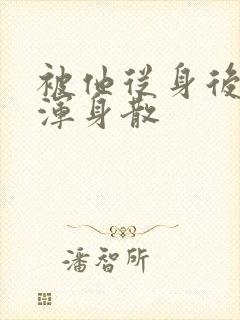 被他从身後
渾身散
潘智所